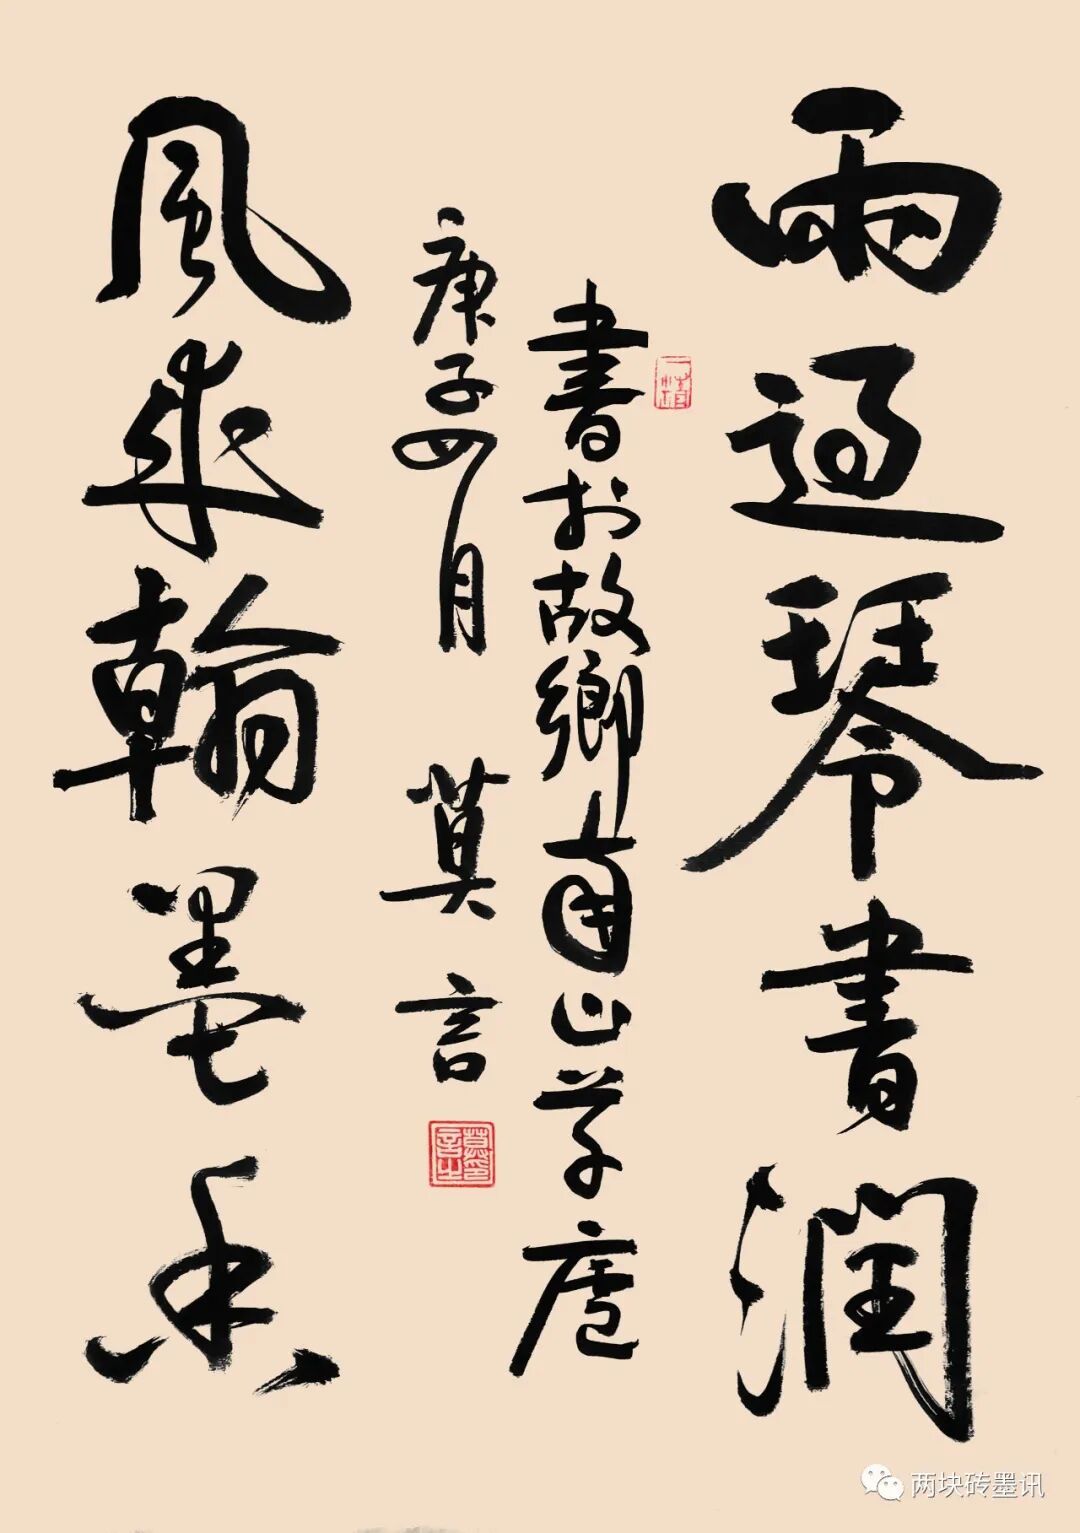 雨過琴書潤
書於故鄉南山草廬
庚子四月 莫言
風來翰墨香
两块砖墨讯